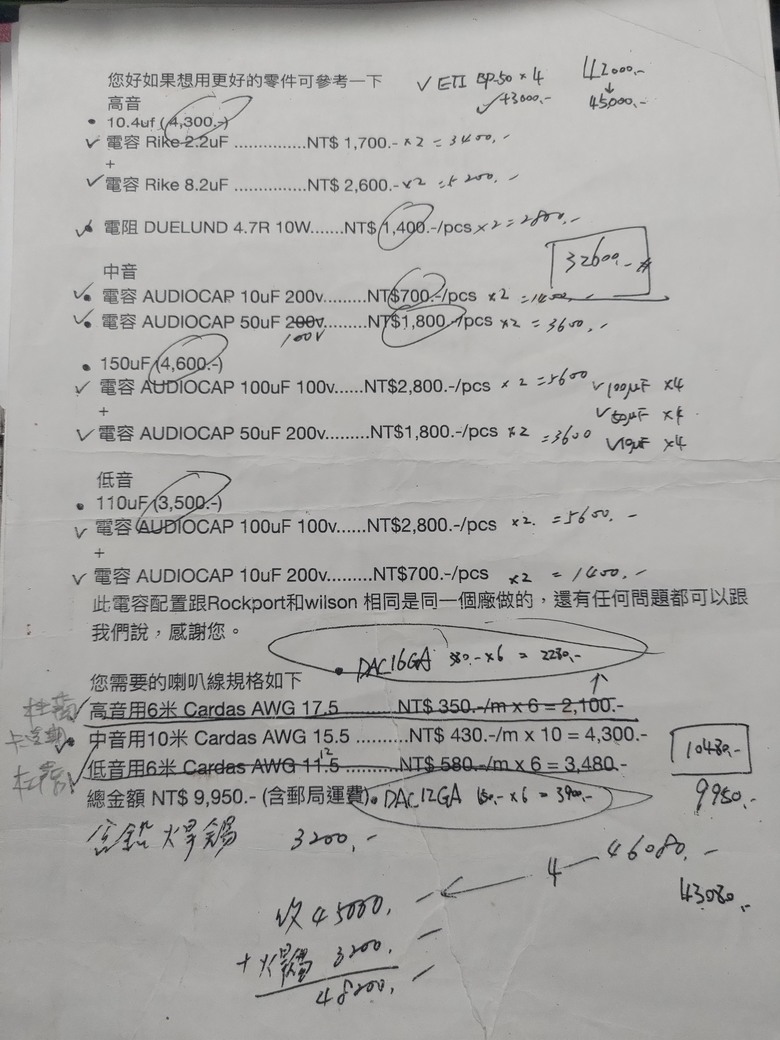 您好如果想用更好的零件可參考一下 ✓ ETI BP-50 × 4 42000.-
高音 ✓ +3000.- ↓ 45000.-
• 10.4uf (4,300.-)
✓ 電容 Rike 2.2uF ..............NT$ 1,700.- ×2 = 3400.-
+
✓ 電容 Rike 8.2uF ..............NT$ 2,600.- ×2 = 5200.-
✓• 電阻 DUELUND 4.7R 10W.......NT$ 1,400.-/pcs ×2 = 2800.-
32600.-#
中音
✓• 電容 AUDIOCAP 10uF 200v.........NT$700.-/pcs ×2 = 1400.-
✓• 電容 AUDIOCAP 50uF 200v.........NT$1,800.-/pcs ×2 = 3600.-
100V
• 150uF (4,600.-)
✓ 電容 AUDIOCAP 100uF 100v......NT$2,800.-/pcs ×2 = 5600 ✓ 100µF ×4
+ ✓ 50µF ×4
✓ 電容 AUDIOCAP 50uF 200v.........NT$1,800.-/pcs ×2 = 3600 ✓ 10µF ×4
低音
• 110uF (3,500.-)
✓ 電容 AUDIOCAP 100uF 100v......NT$2,800.-/pcs ×2. = 5600.-
+
✓ 電容 AUDIOCAP 10uF 200v.........NT$700.-/pcs ×2 = 1400.-
此電容配置跟Rockport和wilson 相同是同一個廠做的，還有任何問題都可以跟
我們說，感謝您。
• DAC16GA 380.-×6 = 2280.-
您需要的喇叭線規格如下
✓ 高音用6米 Cardas AWG 17.5 .........NT$ 350.-/m x 6 = 2,100.-
• 中音用10米 Cardas AWG 15.5 ..........NT$ 430.-/m x 10 = 4,300.-
12
低音用6米 Cardas AWG 11.5 ..........NT$ 580.-/m x 6 = 3,480.-
10480.-
總金額 NT$ 9,950.- (含郵局運費) • DAC12GA 650.-×6 = 3900.- 9950.-
含鉛 焊錫 3200.-
4 46080.-
43080.-
收 45000.-
+ 焊錫 3200.-
48200.-